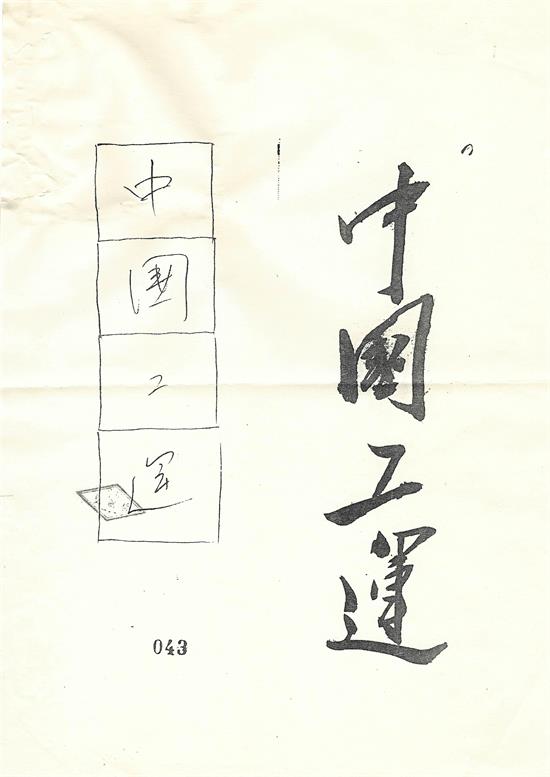 中國工運
中
國
工
運
043